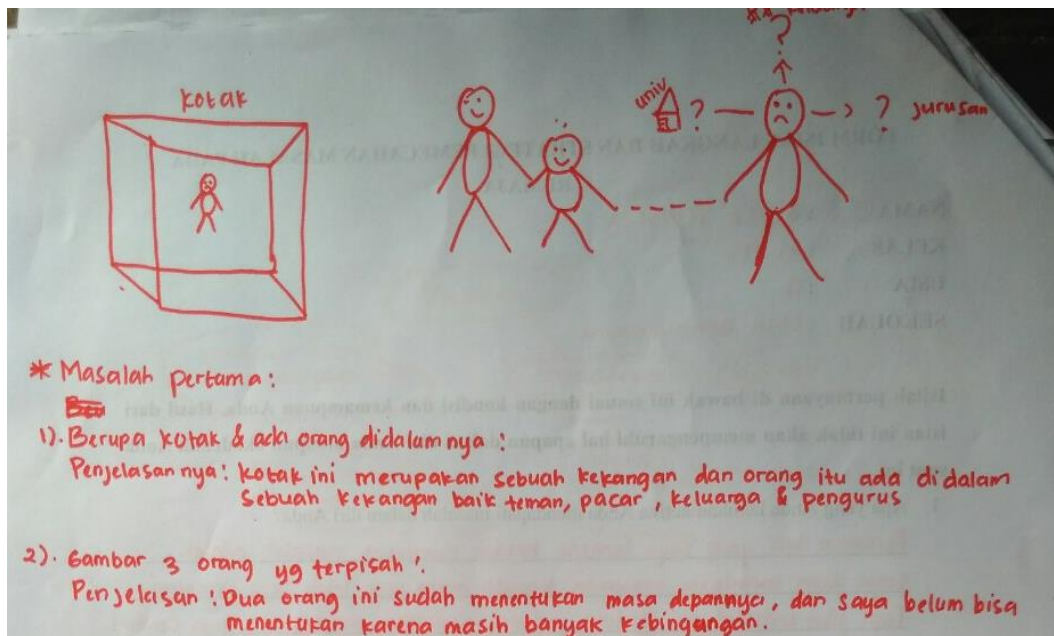 kotak
univ
?
?
? jurusan
* Masalah pertama:
1). Berupa kotak & ada orang didalam nya :
Penjelasan nya: kotak ini merupakan sebuah kekangan dan orang itu ada di dalam
sebuah kekangan baik teman, pacar, keluarga & pengurus
2). Gambar 3 orang yg terpisah :
Penjelasan : Dua orang ini sudah menentukan masa depannya, dan saya belum bisa
menentukan karena masih banyak kebingungan.